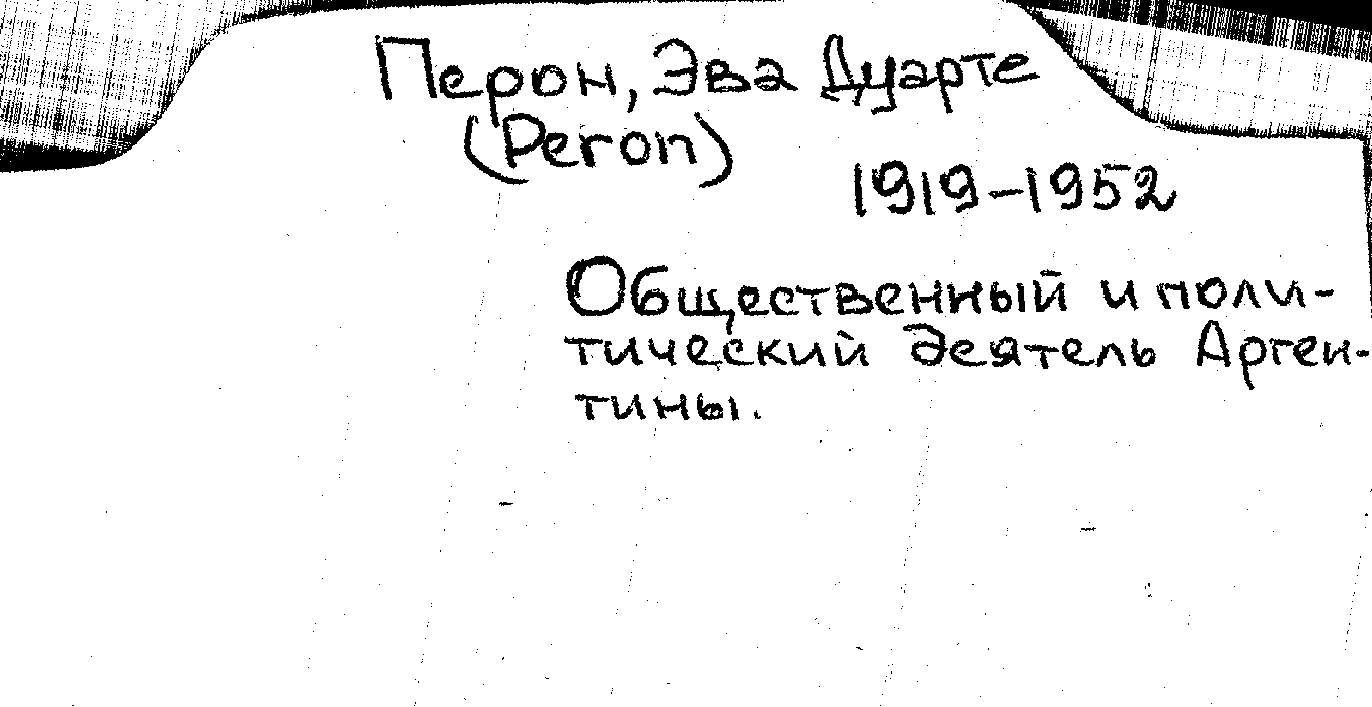 Перон, Эва Дуарте
(Peron)
1919-1952
Общественный и поли-
тический деятель Арген-
тины.